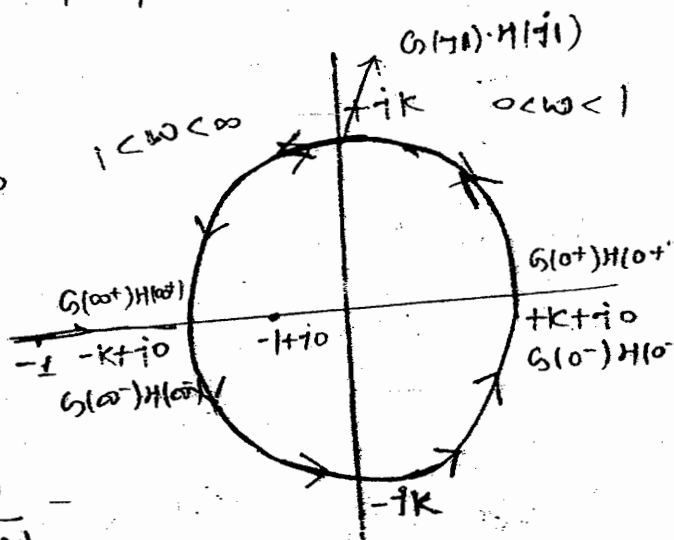 G(j1).H(j1)
+jK
0<ω<1
1<ω<∞
G(0+)H(0+
G(∞+)H(∞+)
+K+j0
-1+j0
-1
-K+j0
G(0-)H(0-
G(∞-)H(∞-)
-jK